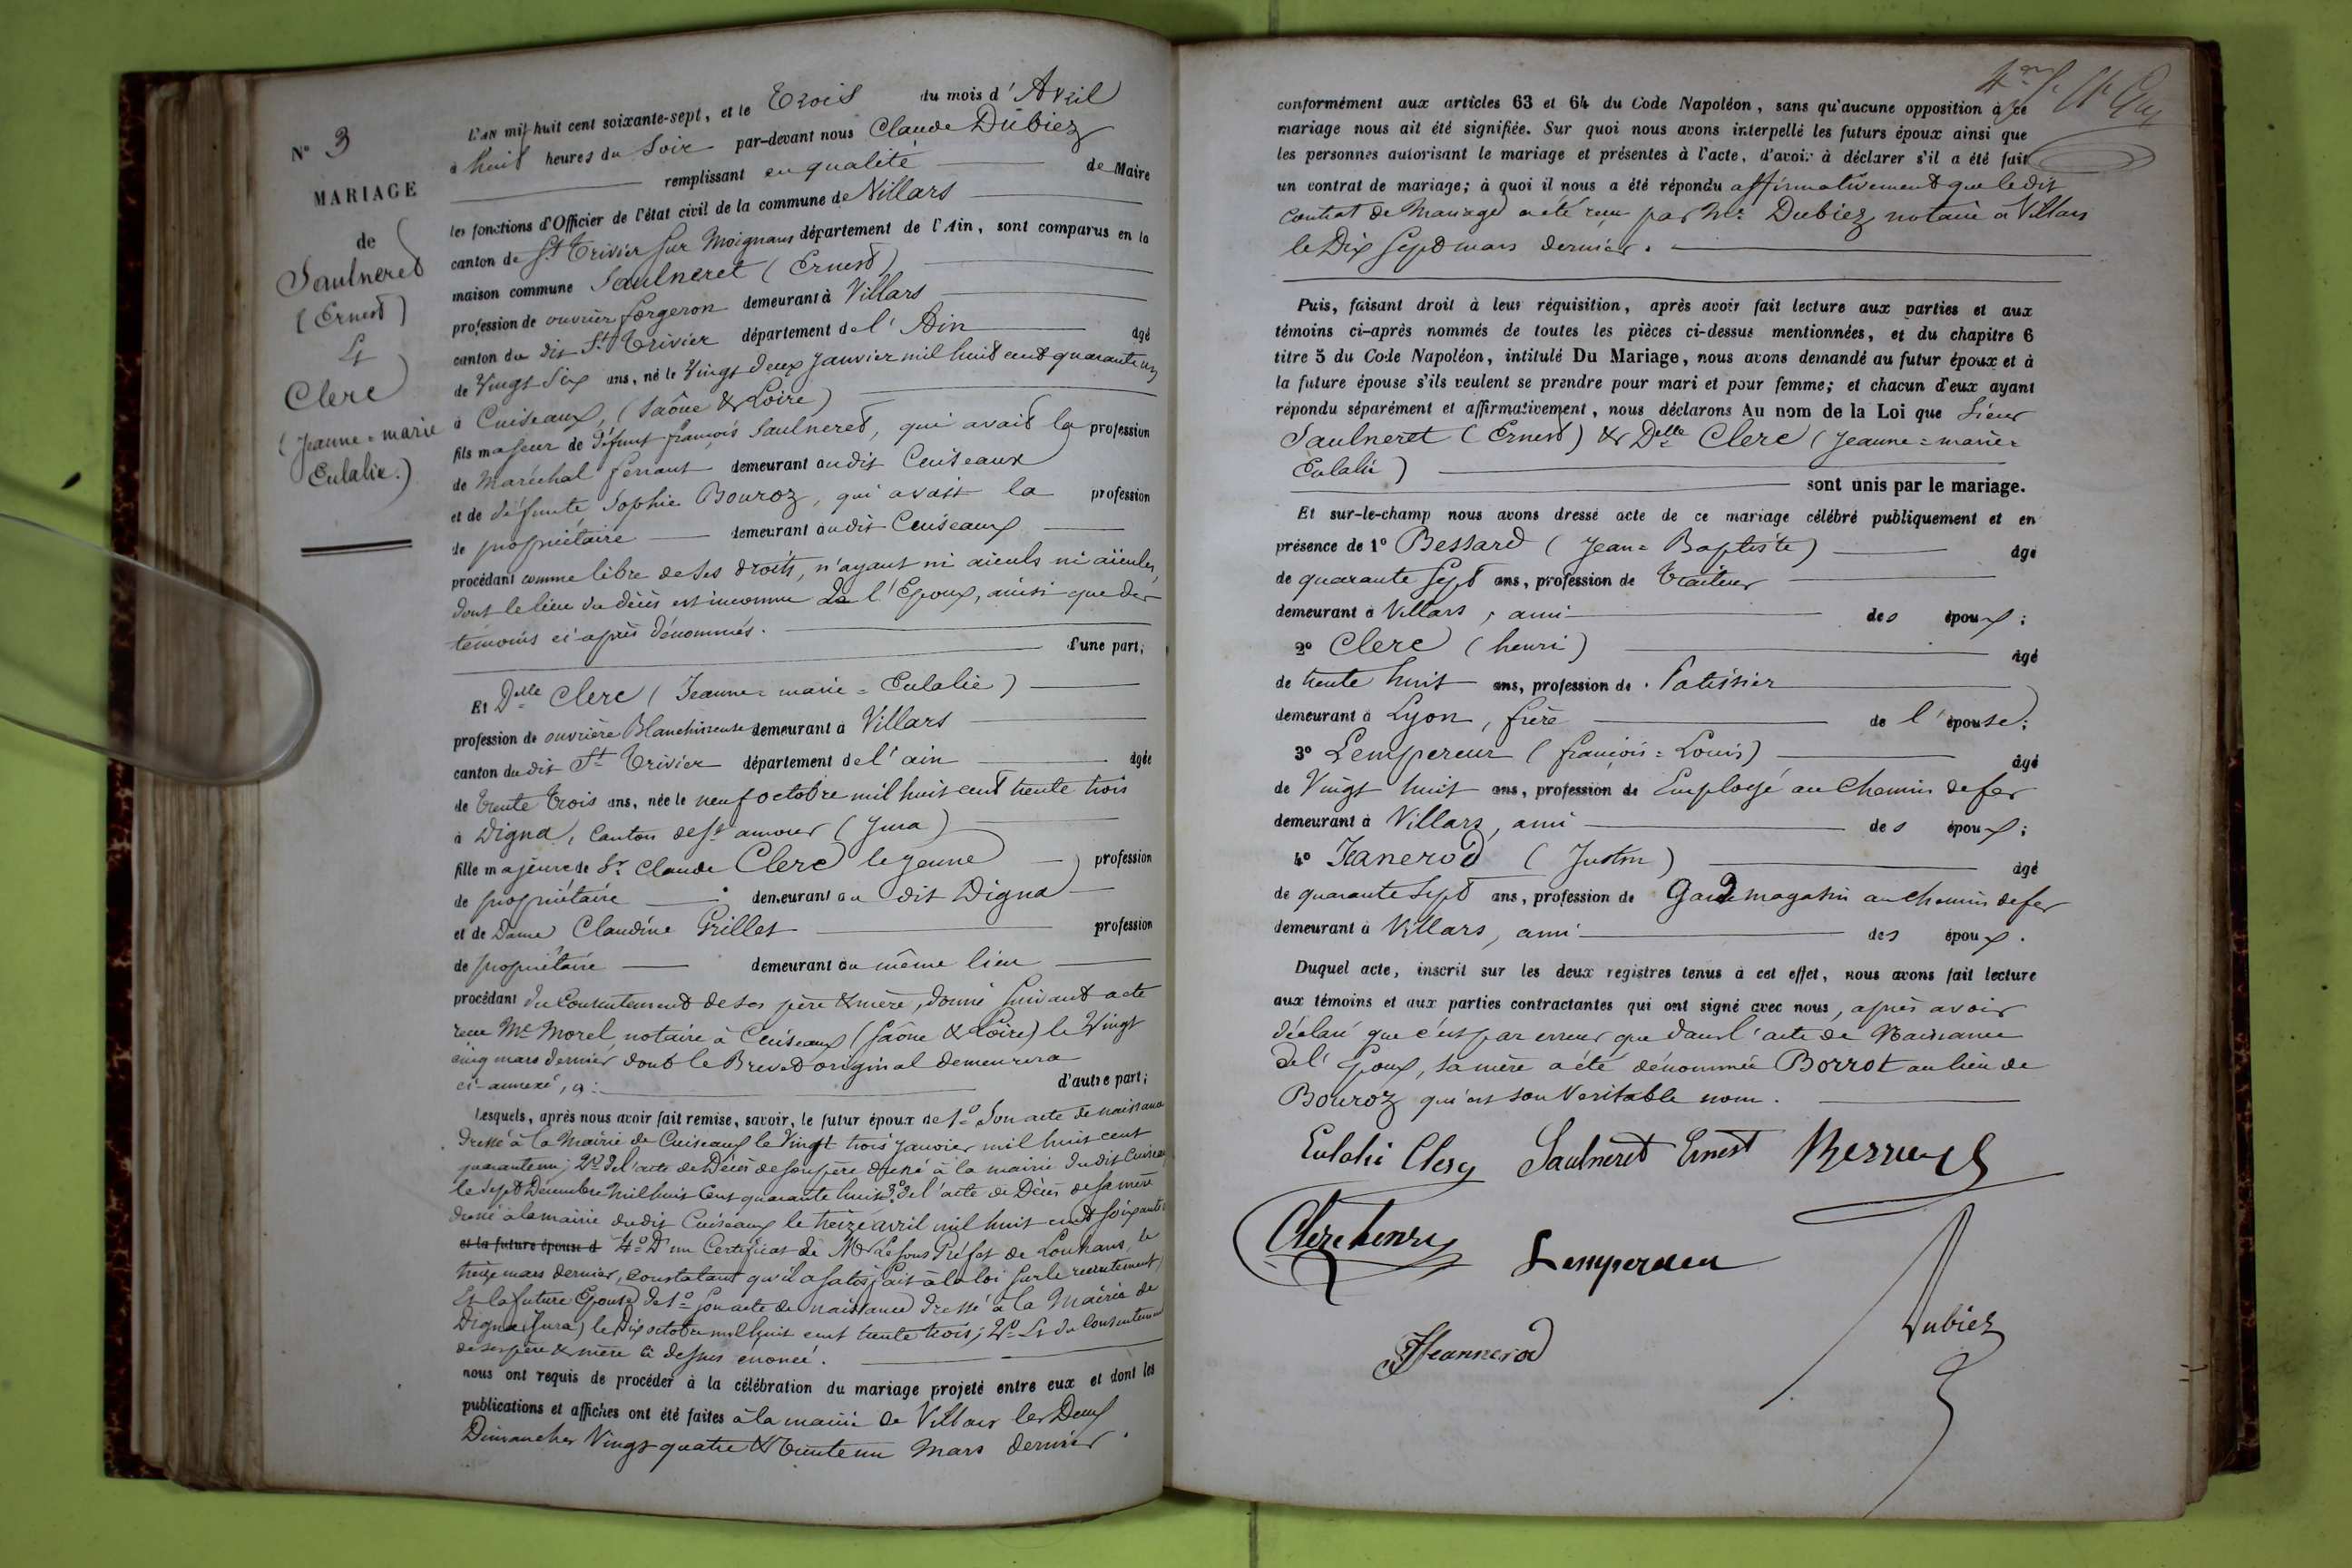 N° 3
MARIAGE
de
Saulneret
(Ernest)
Et
Clerc
(Jeanne=marie
Eulalie.)
L'AN mil huit cent soixante-sept, et le Trois du mois d'Avril
à huit heures du Soir par-devant nous Claude Dubiez
remplissant en qualité de Maire
les fonctions d'Officier de l'état civil de la commune de Villars
canton de St Trivier sur Moignans département de l'Ain, sont comparus en la
maison commune Saulneret (Ernest)
profession de ouvrier forgeron demeurant à Villars
canton du dit St Trivier département de l'Ain âgé
de Vingt Six ans, né le Vingt deux Janvier mil huit cent quarante un
à Cuiseaux, (Saône & Loire)
fils majeur de défunt françois Saulneret, qui avait la profession
de Maréchal ferrant demeurant audit Cuiseaux
et de défunte Sophie Bouroz, qui avait la profession
de propriétaire demeurant audit Cuiseaux
procédant comme libre de ses droits, n'ayant ni aïeuls ni aïeules,
dont le lieu du décès est inconnu de l'Epoux, ainsi que des
témoins ci-après dénommés.
d'une part;
Et Delle Clerc (Jeanne=marie=Eulalie)
profession de ouvrière Blanchisseuse demeurant à Villars
canton du dit St Trivier département de l'ain âgée
de trente trois ans, née le neuf octobre mil huit cent trente trois
à Digna, Canton de St amour (Jura)
fille majeure de Sr Claude Clerc le jeune profession
de propriétaire demeurant au dit Digna
et de Dame Claudine Grillet profession
de propriétaire demeurant au même lieu
procédant du Consentement de ses père & mère, donné suivant acte
reçu Me Morel, notaire à Cuiseaux (Saône & Loire) le Vingt
cinq mars dernier dont le Brevet original demeurera
ci-annexé, d'autre part;
Lesquels, après nous avoir fait remise, savoir, le futur époux de 1° Son acte de naissance
dressé à la Mairie de Cuiseaux le Vingt trois Janvier mil huit cent
quarante un; 2° de l'acte de Décès de son père dressé à la mairie du dit Cuiseaux
le sept Décembre mil huit Cent quarante huit; 3° de l'acte de Décès de sa mère
dressé à la mairie du dit Cuiseaux le treize avril mil huit cent soixante
et la future épouse d 4° D'un Certificat de Mr Le Sous Préfet de Louhans, le
treize mars dernier, constatant qu'il a satisfait à la loi sur le recrutement
Et la future Epouse de 1° son acte de naissance dressé à la Mairie de
Digna (Jura) le Dix octobre mil huit cent trente trois; 2° Et du Consentement
de ses père & mère ci dessus énoncé.
nous ont requis de procéder à la célébration du mariage projeté entre eux et dont les
publications et affiches ont été faites à la mairie de Villars les Deux
Dimanches Vingt-quatre & trente un Mars dernier.
conformément aux articles 63 et 64 du Code Napoléon, sans qu'aucune opposition à ce
mariage nous ait été signifiée. Sur quoi nous avons interpellé les futurs époux ainsi que
les personnes autorisant le mariage et présentes à l'acte, d'avoir à déclarer s'il a été fait
un contrat de mariage; à quoi il nous a été répondu affirmativement que ledit
Contrat de Mariage a été reçu par Me Dubiez notaire à Villars
le Dix Sept mars dernier.
Puis, faisant droit à leur réquisition, après avoir fait lecture aux parties et aux
témoins ci-après nommés de toutes les pièces ci-dessus mentionnées, et du chapitre 6
titre 5 du Code Napoléon, intitulé Du Mariage, nous avons demandé au futur époux et à
la future épouse s'ils veulent se prendre pour mari et pour femme; et chacun d'eux ayant
répondu séparément et affirmativement, nous déclarons Au nom de la Loi que Sieur
Saulneret (Ernest) & Delle Clerc (Jeanne=marie=
Eulalie)
sont unis par le mariage.
Et sur-le-champ nous avons dressé acte de ce mariage célébré publiquement et en
présence de 1° Bessard (Jean=Baptiste) âgé
de quarante Sept ans, profession de Traiteur
demeurant à Villars, ami des époux;
2° Clerc (henri) âgé
de trente huit ans, profession de Patissier
demeurant à Lyon, frère de l'épouse;
3° Lempereur (françois=Louis) âgé
de Vingt huit ans, profession de Employé au Chemin de fer
demeurant à Villars, ami des époux;
4° Jeanerod (Justin) âgé
de quarante Sept ans, profession de Garde magasin au Chemin de fer
demeurant à Villars, ami des époux.
Duquel acte, inscrit sur les deux registres tenus à cet effet, nous avons fait lecture
aux témoins et aux parties contractantes qui ont signé avec nous, après avoir
déclaré que c'est par erreur que dans l'acte de Naissance
de l'Epoux, sa mère a été dénommée Borrot au lieu de
Bouroz qui est son Veritable nom.
Eulalie Clerc Saulneret Ernest
Clerc henry Lempereur
Dubiez
JJeannerod